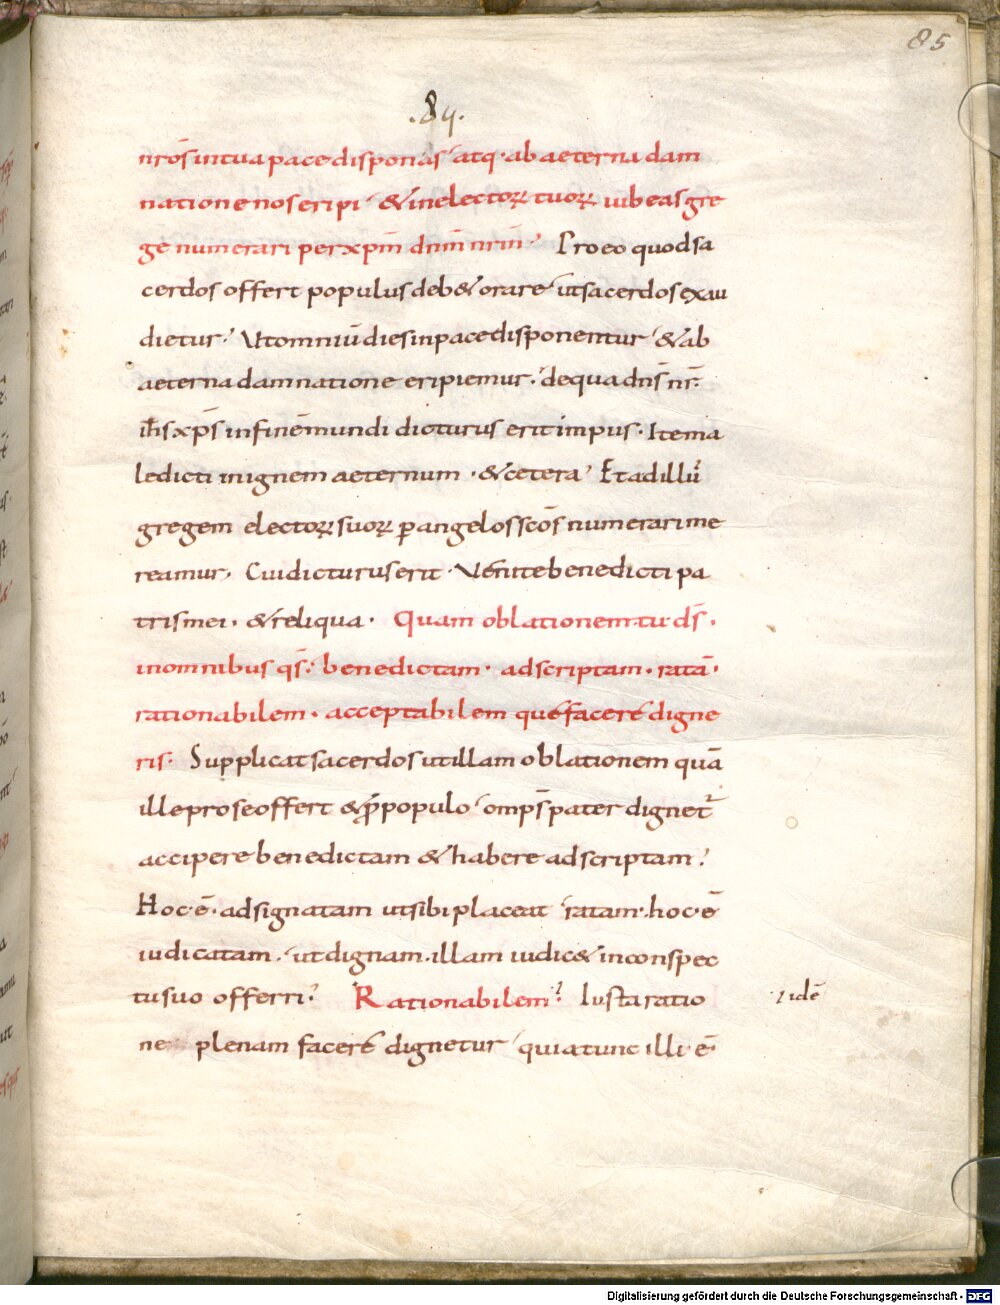 85
.84.
nr̄os in tua pace disponas atq· ab aeterna dam
natione nos eripi & in electoꝝ tuoꝝ iubeas gre
ge numerari per xp̄m dn̄m nr̄m· Pro eo quod sa
cerdos offert populus deb& orare ut sacerdos exau
dietur· Ut omniū dies in pace disponentur & ab
aeterna damnatione eripiemur· de qua dn̄s nr̄·
ih̄s xp̄s in finē mundi dicturus erit impiis· Ite ma
ledicti in ignem aeternum· & cetera· Et ad illū
gregem electoꝝ suoꝝ ꝑ angelos sc̄os numerari me
reamur· Cui dicturus erit· Venite benedicti pa
tris mei· & reliqua· Quam oblationem tu ds̄·
in omnibus qs̄· benedictam· adscriptam· ratā·
rationabilem· acceptabilemque facere digne
ris· Supplicat sacerdos ut illam oblationem quā
ille pro se offert & p̄ populo omp̄s pater dignet̄
accipere benedictam & habere adscriptam·
Hoc ē· adsignatam ut sibi placeat ratam· hoc ē
iudicatam· ut dignam· illam iudic& in conspec
tu suo offerri· Rationabilem· Iusta ratio
idē
ne plenam facere dignetur quia tunc illi ē·
Digitalisierung gefördert durch die Deutsche Forschungsgemeinschaft - DFG